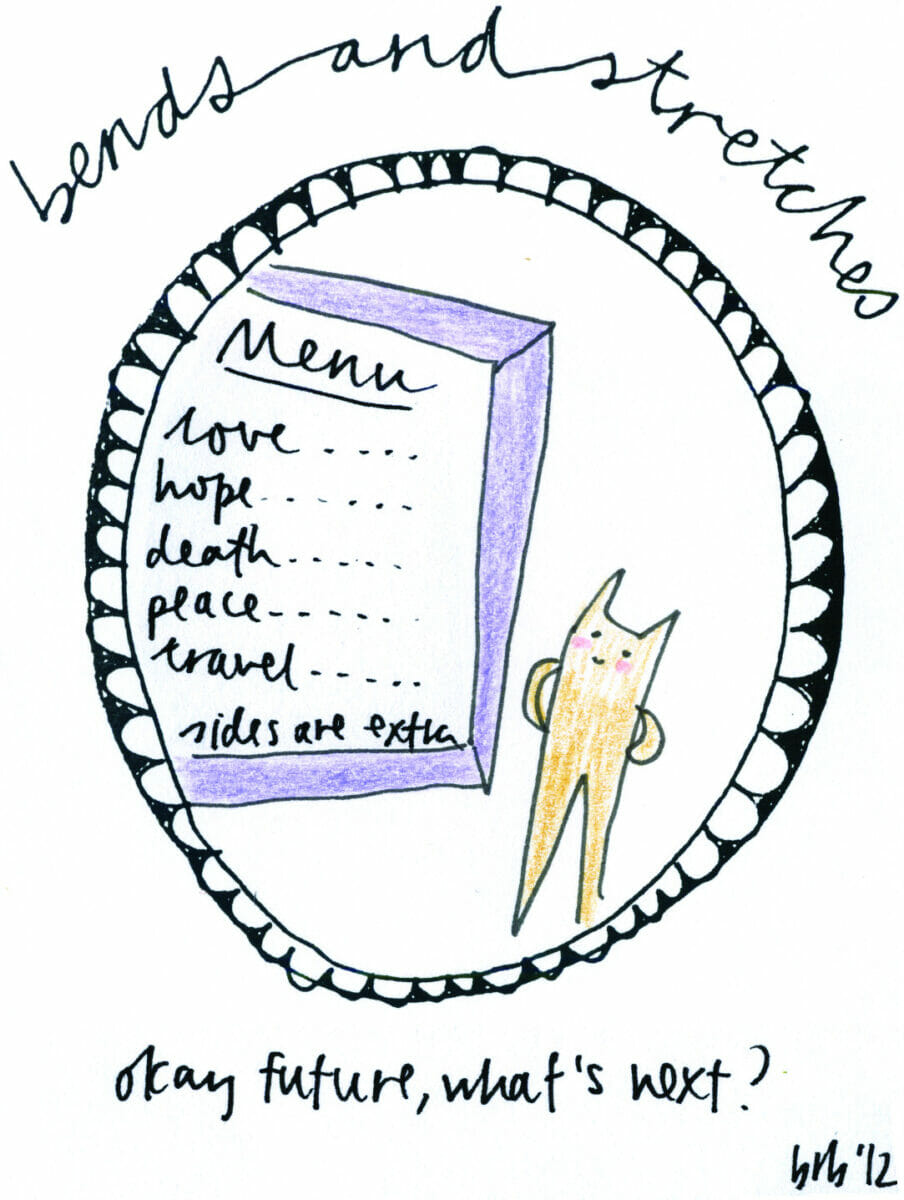 bends and stretches
Menu
love.....
hope.......
death.....
peace......
travel.....
sides are extra
okay future, what's next?
brb '12